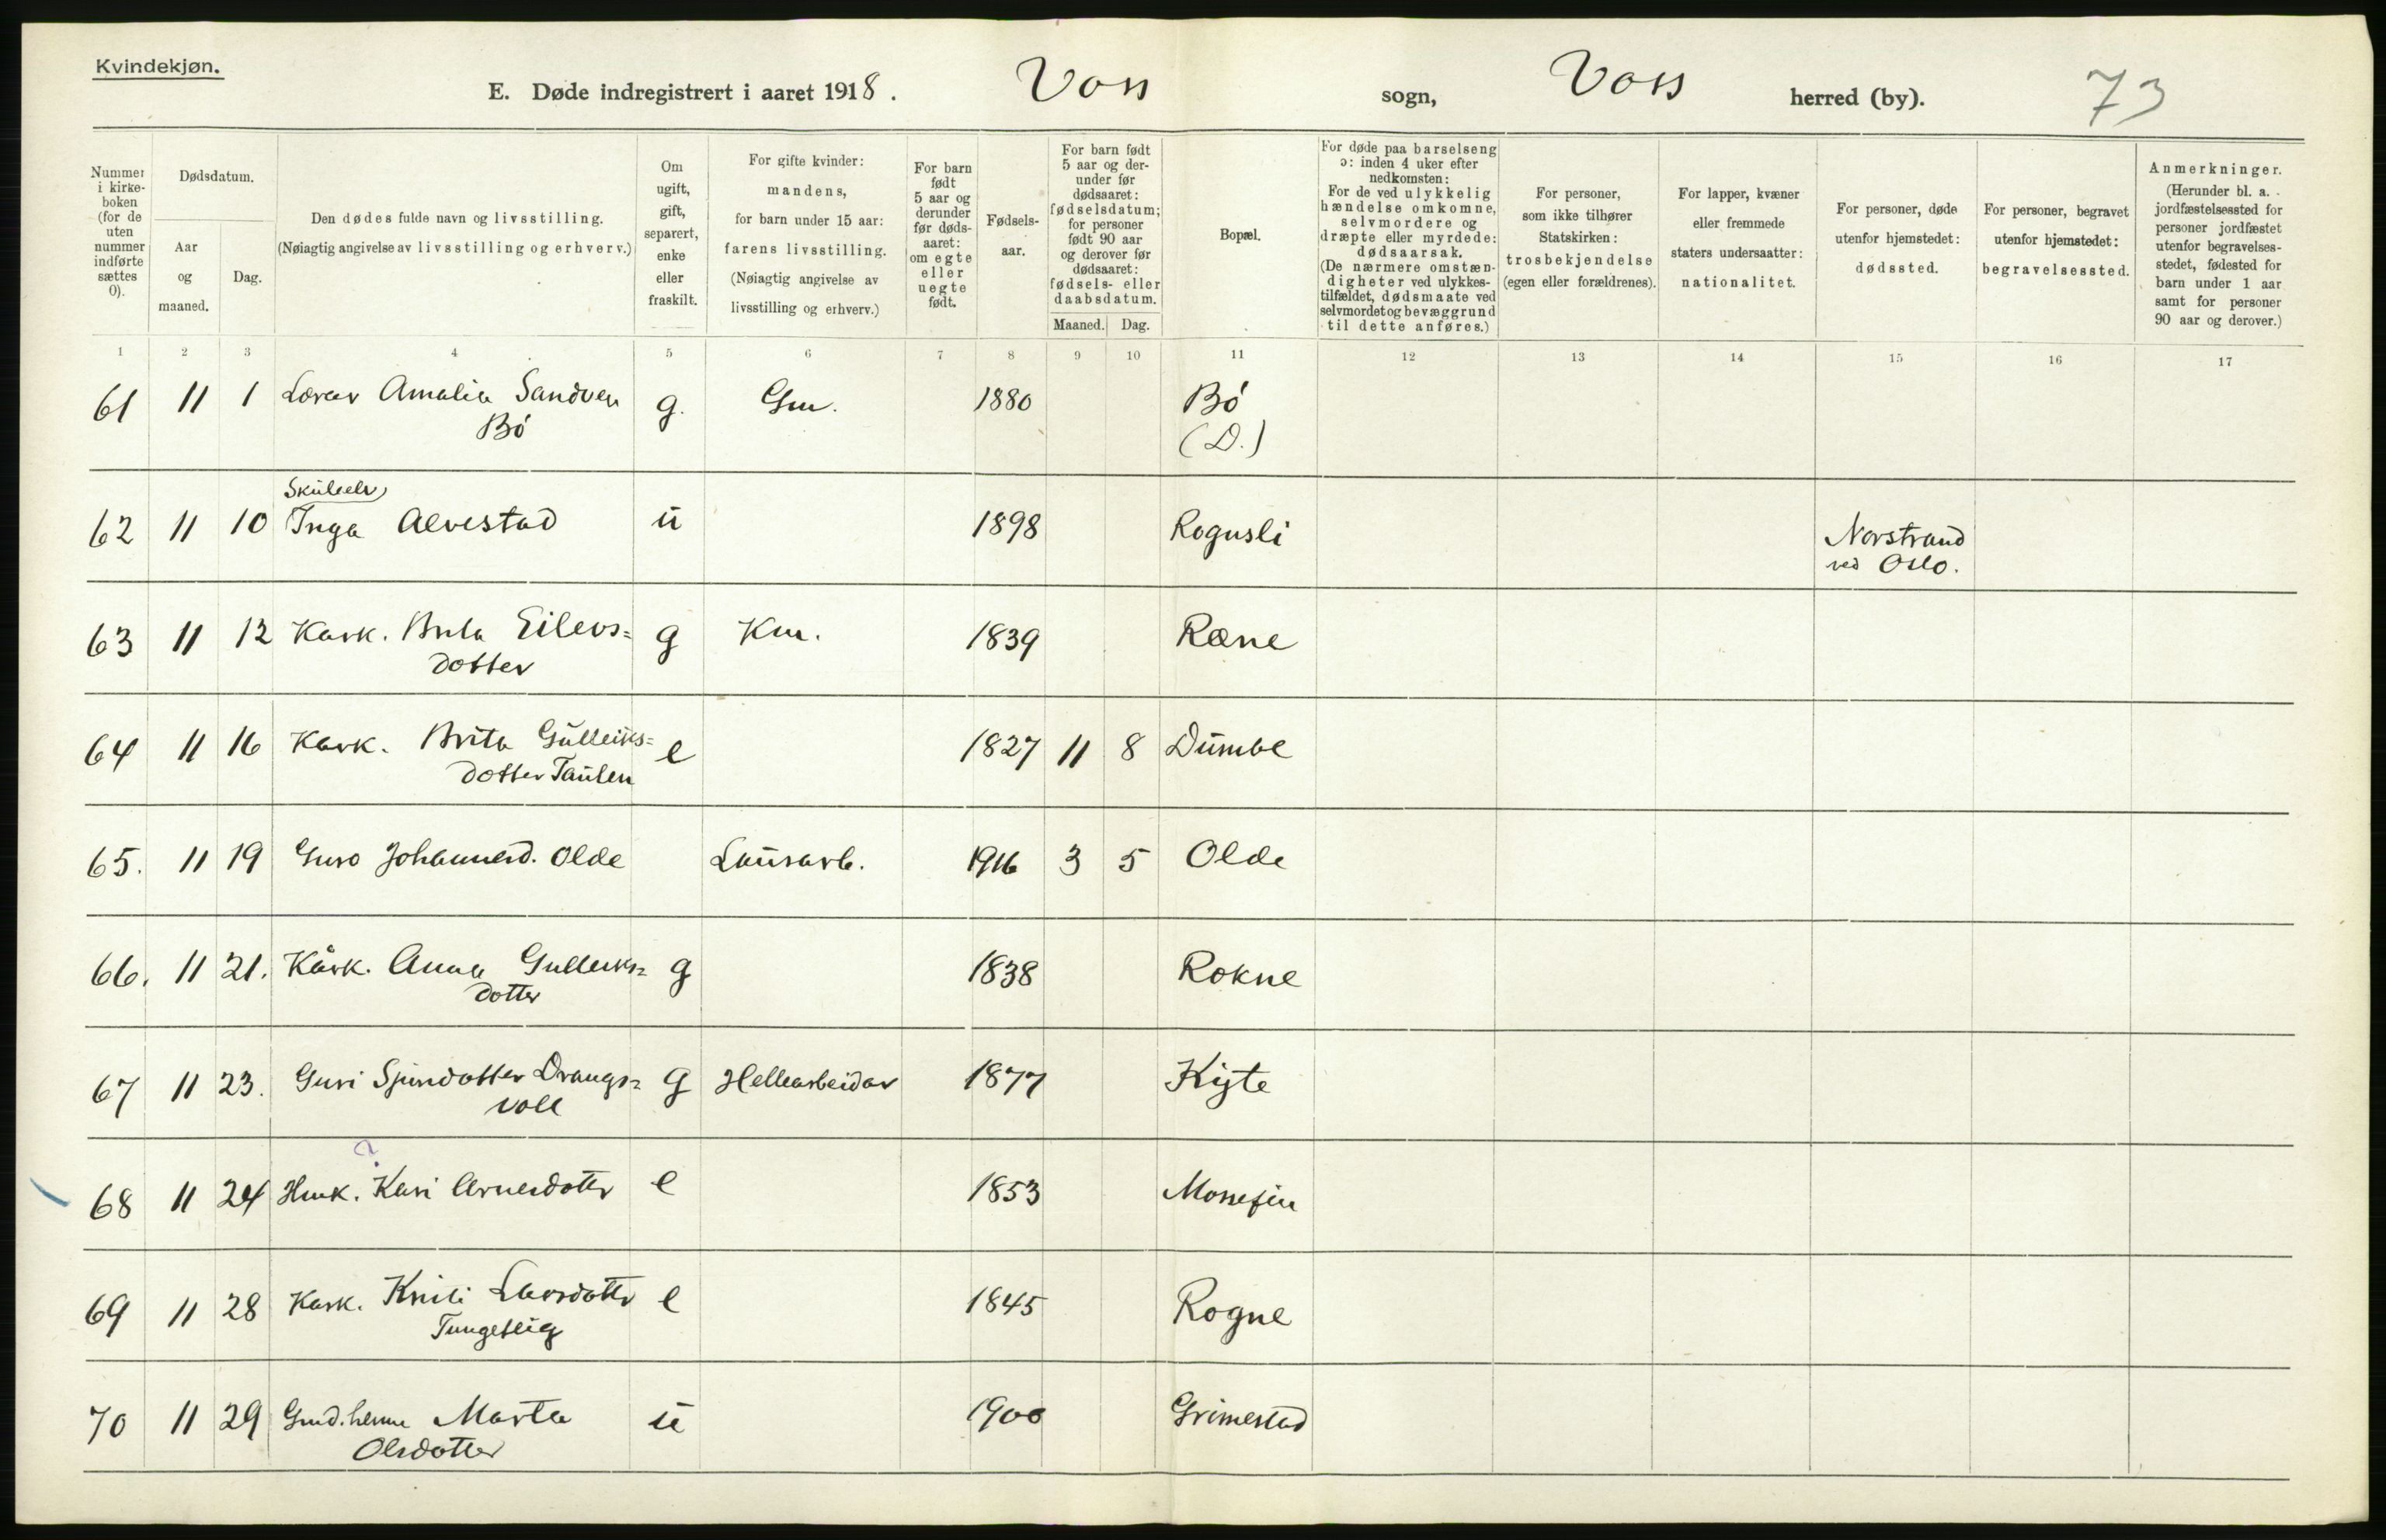 Kvindekjøn.
E. Døde indregistrert i aaret 1918. Voss sogn, Voss herred (by). 73
Nummer i kirkeboken (for de uten nummer indførte sættes 0).
Dødsdatum.
Aar og maaned.
Dag.
Den dødes fulde navn og livsstilling.
(Nøiagtig angivelse av livsstilling og erhverv.)
Om ugift, gift, separert, enke eller fraskilt.
For gifte kvinder: mandens, for barn under 15 aar: farens livsstilling. (Nøiagtig angivelse av livsstilling og erhverv.)
For barn født 5 aar og derunder før dødsaaret: om egte eller uegte født.
Fødselsaar.
For barn født 5 aar og derunder før dødsaaret: fødselsdatum; for personer født 90 aar og derover før dødsaaret: fødsels- eller daabsdatum.
Maaned. Dag.
Bopæl.
For døde paa barselseng ɔ: inden 4 uker efter nedkomsten: For de ved ulykkelig hændelse omkomne, selvmordere og dræpte eller myrdede: dødsaarsak. (De nærmere omstændigheter ved ulykkestilfældet, dødsmaate ved selvmordet og bevæggrund til dette anføres.)
For personer, som ikke tilhører Statskirken: trosbekjendelse (egen eller forældrenes).
For lapper, kvæner eller fremmede staters undersaatter: nationalitet.
For personer, døde utenfor hjemstedet: dødssted.
For personer, begravet utenfor hjemstedet: begravelsessted.
Anmerkninger. (Herunder bl. a. jordfæstelsessted for personer jordfæstet utenfor begravelsesstedet, fødested for barn under 1 aar samt for personer 90 aar og derover.)
1 2 3 4 5 6 7 8 9 10 11 12 13 14 15 16 17
61 11 1 Amalia Sandven g. Gm. 1880 Bó
Bó (D.)
Skuleelv
62 11 10 Inga Alvestad u 1898 Rogusli Norstrand
ved Oslo.
63 11 12 Kark. Brita Eilevs= g Km. 1839 Ræne
dotter
64 11 16 Kark. Brita Gulleiks= e 1827 11 8 Dumbe
dotter Taulen
65. 11 19 Guro Johannesd. Olde Lausarb. 1916 3 5 Olde
66. 11 21. Kårk. Anna Gulleiks= g 1838 Rokne
dotter
67 11 23. Guri Sjursdotter Drangs= g Hellearbeidar 1877 Kyte
voll
?
68 11 24 Hmk. Kari Arnesdotter e 1853 Mossefin
69 11 28 Kark. Larsdotter e 1845 Rogne
70 11 29 Marta u 1900 Grimestad
Olsdotter